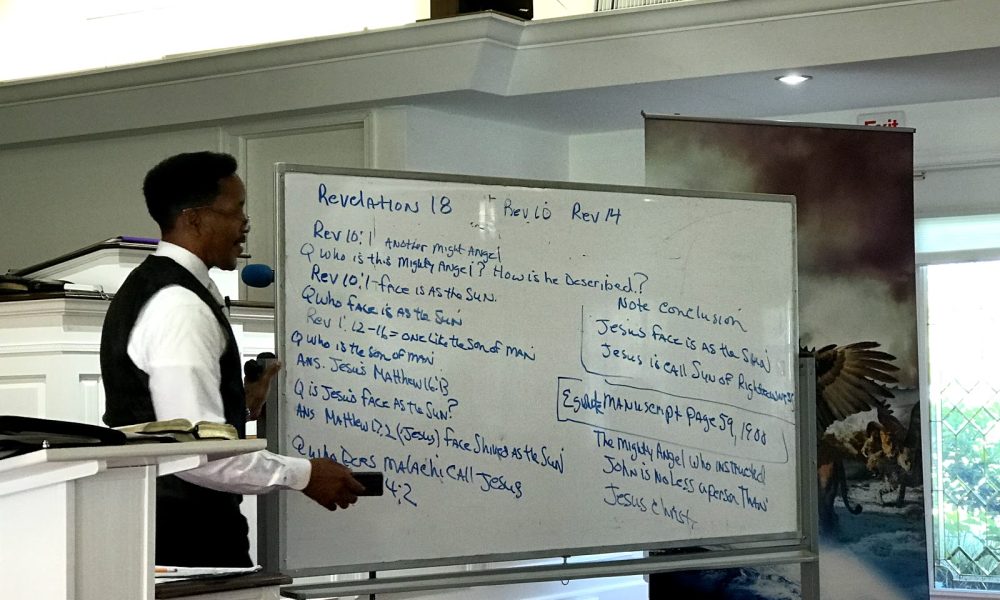 Revelation 18 Rev 10 Rev 14
Rev 10:1 Another Might Angel
Q Who is this Mighty Angel? How is he Described?
Rev 10:1 - face is as the sun.
Q Who face is as the sun
Rev 1:12-16 = one like the son of man
Q Who is the son of man
Ans. Jesus Matthew 16:13
Q is Jesus face as the sun?
Ans Matthew 17:2 (Jesus) face shined as the sun
Q Who Does Malachi call Jesus
4:2
Note Conclusion
Jesus face is as the sun
Jesus is call sun of Righteousness
Manuscript page 59, 1900
The Mighty Angel who instructed
John is no less a person than
Jesus Christ
Exit